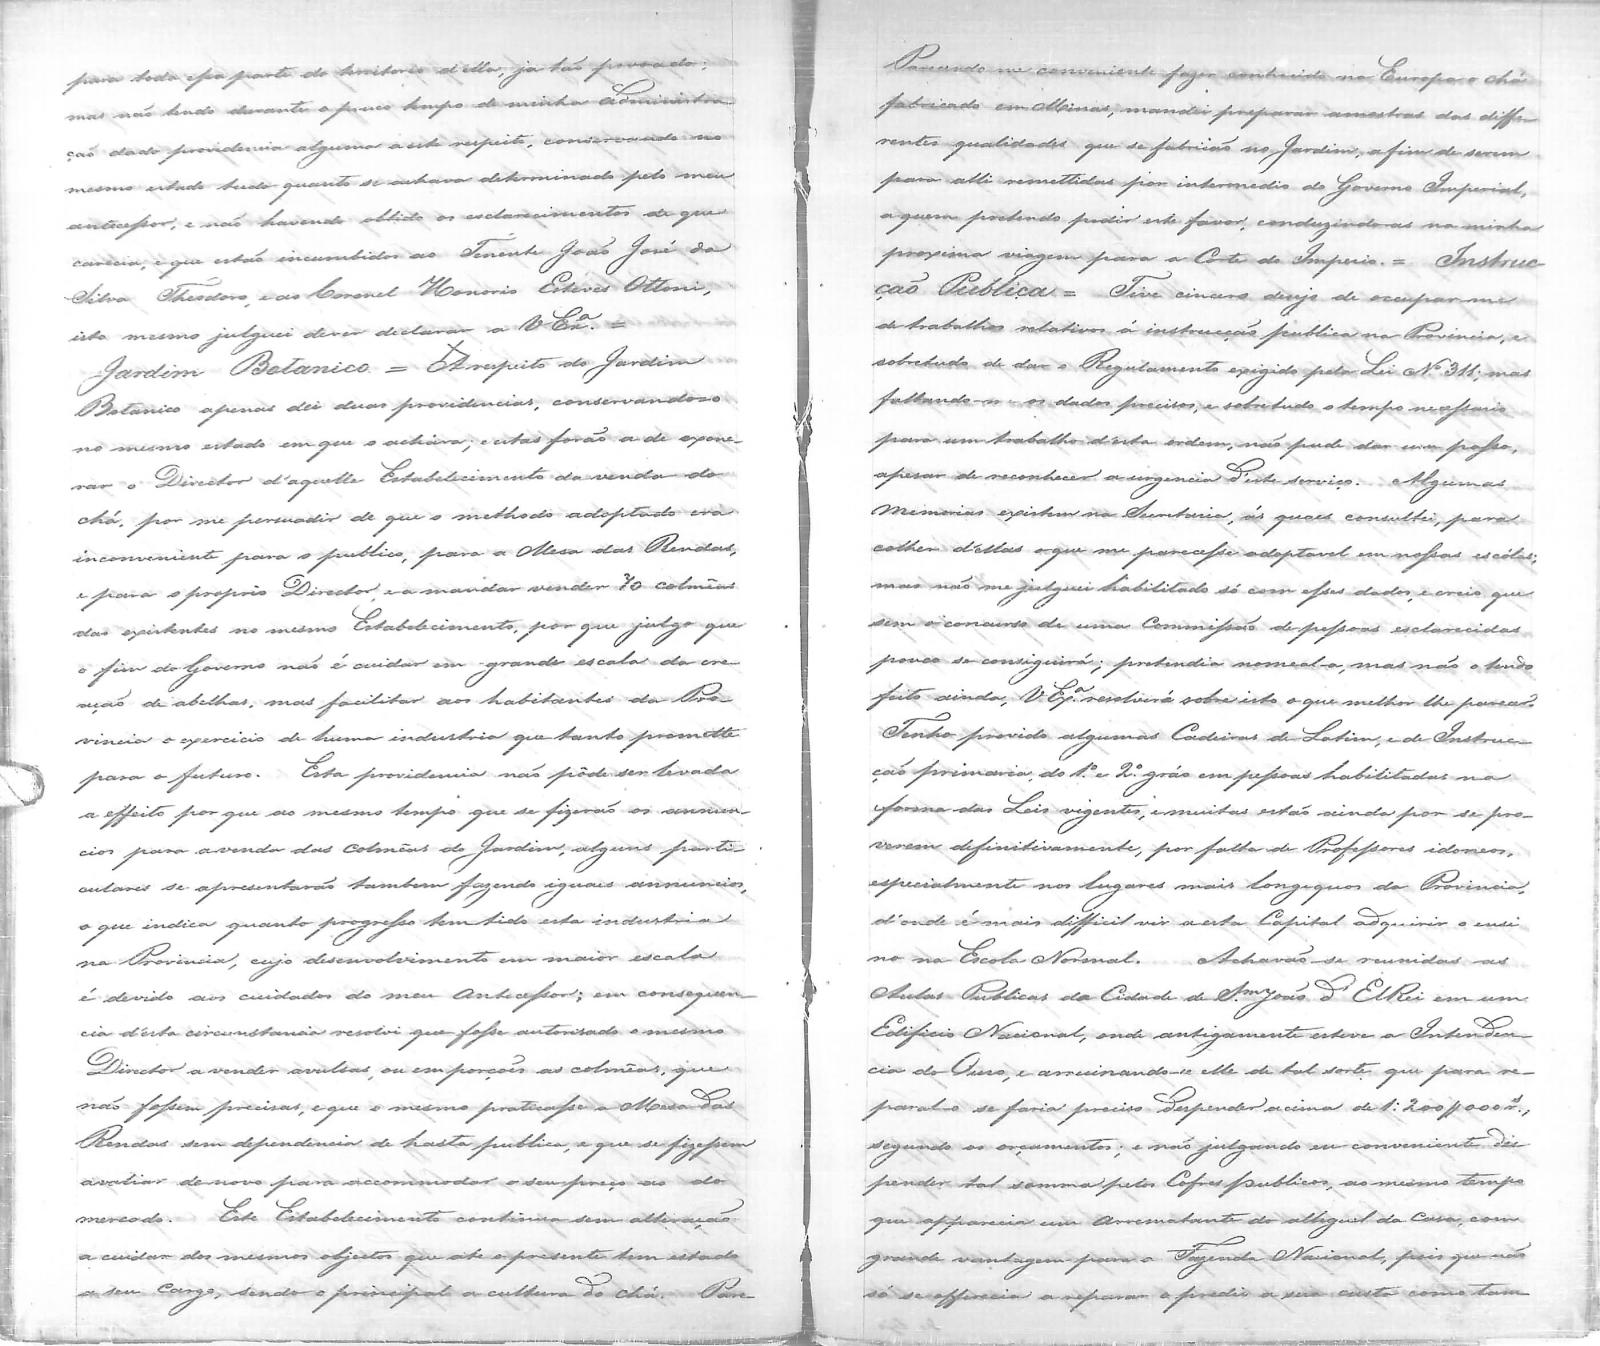 para toda essa parte do territorio d'ella, já tão povoado;
mas não tendo durante o pouco tempo de minha Administra
ção dado providencia alguma a este respeito, conservando no
mesmo estado tudo quanto se achava determinado pelo meu
antecessor, e não havendo obtido os esclarecimentos de que
carecia, e que estão incumbidos ao Tenente João José da
Silva Theodoro, e ao Coronel Honorio Esteves Ottoni,
isto mesmo julguei dever declarar a VExª. =
Jardim Botanico = A respeito do Jardim
Botanico apenas dei duas providencias, conservando-o
no mesmo estado em que o achára; e estas forão a de exone-
rar o Director d'aquelle Estabelecimento da venda do
chá, por me persuadir de que o methodo adoptado era
inconveniente para o publico, para a Mesa das Rendas,
e para o proprio Director, e a mandar vender 70 colmêas
das existentes no mesmo Estabelecimento, por que julgo que
o fim do Governo não é cuidar em grande escala da cre-
ação de abelhas, mas facilitar aos habitantes da Pro-
vincia o exercicio de huma industria que tanto promette
para o futuro. Esta providencia não pôde ser levada
a effeito por que ao mesmo tempo que se fizerão os annun-
cios para a venda das colmêas do Jardim, alguns parti-
culares se apresentarão tambem fazendo iguaes annuncios,
o que indica quanto progresso tem tido esta industria
na Provincia, cujo desenvolvimento em maior escala
é devido aos cuidados do meu Antecessor; em consequen-
cia d'esta circunstancia resolvi que fosse autorisado o mesmo
Director a vender avulsas, ou em porções as colmêas, que
não fossem precisas, e que o mesmo praticasse a Mesa das
Rendas sem dependencia de hasta publica, e que se fizessem
avaliar de novo para accommodar o seu preço ao do
mercado. Este Estabelecimento continua sem alteração
a cuidar dos mesmos objectos que até o presente tem estado
a seu cargo, sendo o principal a cultura do chá. Pare-
Parecendo-me conveniente fazer conhecido na Europa o chá
fabricado em Minas, mandei preparar amostras das diffe-
rentes qualidades que se fabricão no Jardim, a fim de serem
para alli remettidas por intermedio do Governo Imperial,
a quem pretendo pedir este favor, conduzindo-as na minha
proxima viagem para a Corte do Imperio. = Instruc
ção Publica = Tive cincero desejo de occupar-me
de trabalhos relativos á instrucção publica na Provincia, e
sobretudo de dar o Regulamento exigido pela Lei Nº 311; mas
faltando-me os dados precisos, e sobretudo o tempo necessario
para um trabalho d'esta ordem, não pude dar um passo,
apesar de reconhecer a urgencia d'este serviço. Algumas
Memorias existem na Secretaria, ás quaes consultei, para
colher d'ellas o que me parecesse adoptavel em nossas escólas;
mas não me julguei habilitado só com esses dados, e creio que
sem o concurso de uma Commissão de pessoas esclarecidas
pouco se conseguirá; pretendia nomeal-a, mas não o tendo
feito ainda, VExª. resolverá sobre isto o que melhor lhe parecer.
Tenho provido algumas Cadeiras de Latim, e de Instruc-
ção primaria do 1º e 2º gráo em pessoas habilitadas na
forma das Leis vigentes, e muitas estão ainda por se pro-
verem definitivamente, por falta de Professores idoneos,
especialmente nos lugares mais longiquos da Provincia,
d'onde é mais difficil vir a esta Capital adquirir o ensi
no na Escola Normal. Achavão-se reunidas as
Aulas Publicas da Cidade de S.m João d' ElRei em um
Edificio Nacional, onde antigamente esteve a Intenden-
cia do Ouro, e arruinando-se elle de tal sorte que para re-
paral-o se faria preciso despender acima de 1:200$000 rs.,
segundo os orçamentos; e não julgando eu conveniente dis
pender tal somma pelos Cofres publicos, ao mesmo tempo
que apparecia um Arrematante do alluguel da Casa, com
grande vantagem para a Fazenda Nacional, pois que não
só se offerecia a reparar o predio a sua custa como tam